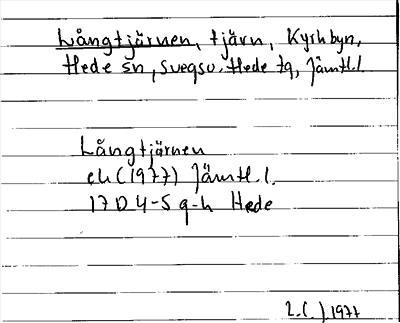 Långtjärnen, tjärn, Kyrkbyn,
Hede sn, Svegs o. Hede tg, Jämtl.l.
Långtjärnen
ek (1977) Jämtl.l.
17 D 4-5 g-h Hede
1977